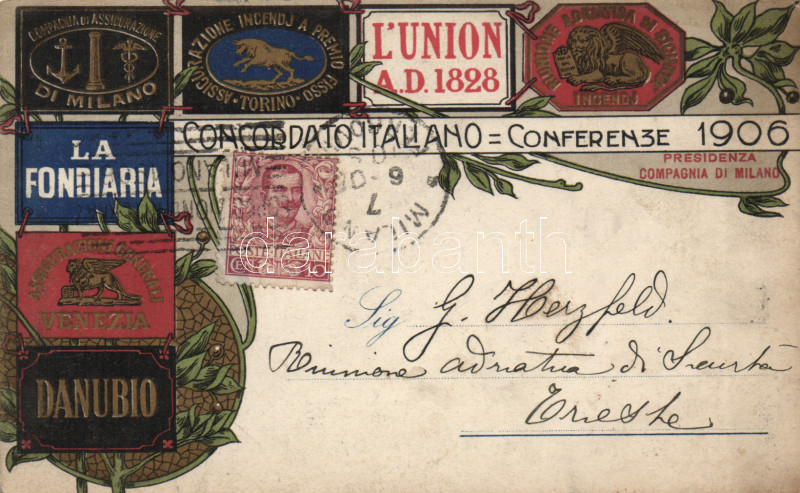 COMPAGNIA DI ASSICURAZIONE
DI MILANO
ASSICURAZIONE INCENDJ A PREMIO FISSO
·TORINO·
L'UNION
A.D. 1828
RIUNIONE ADRIATICA DI SICURTÀ
INCENDJ
CONCORDATO ITALIANO = CONFERENZE 1906
PRESIDENZA
COMPAGNIA DI MILANO
LA
FONDIARIA
ASSICURAZIONI GENERALI
VENEZIA
DANUBIO
POSTE ITALIANE
MILANO
7
darabanth
Sig G. Herzfeld.
Riunione adriatica di Sicurtà
Trieste